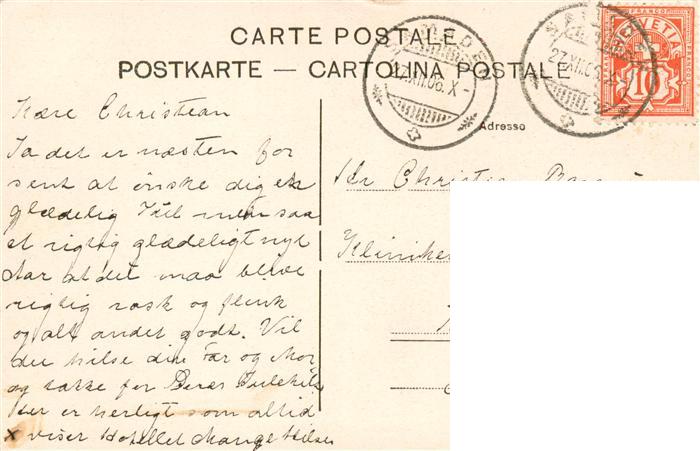 CARTE POSTALE
POSTKARTE — CARTOLINA POSTALE
FRANCO
HELVETIA
10
27.XII.06.X-
27.XII.06.X
Adresse
Kære Christian
Ja det er næsten for
sent at önske dig en
glædelig Jul men saa
et rigtig glædeligt nyt
Aar at det maa blive
rigtig rask og flink
og alt andet godt. Vil
du hilse din Far og Mor
og takke for Deres Julehils
Her er herligt som altid
x viser Hotellet Mange Hilsen
Hr Christian
Kliniken